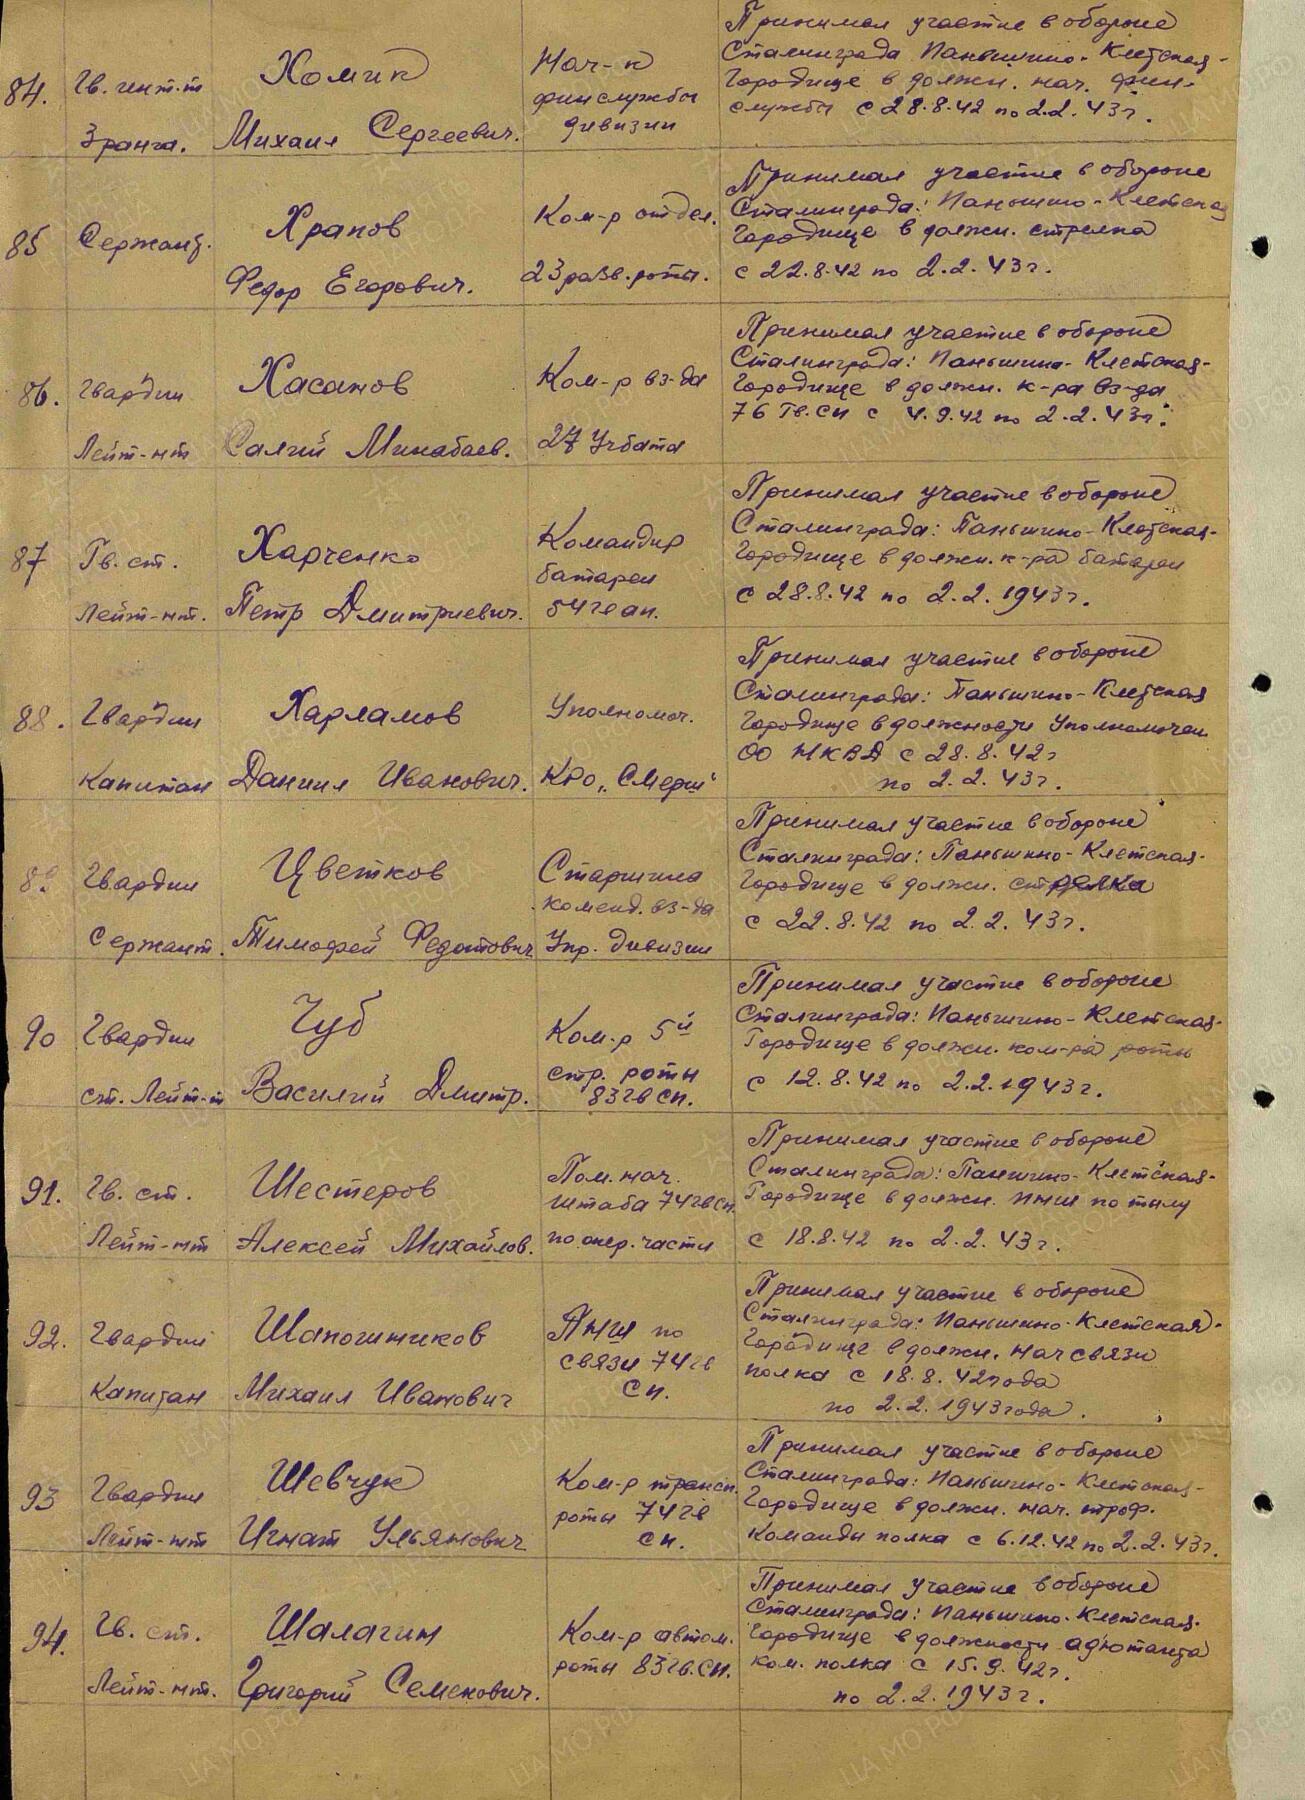 84.
Гв. инт-т
3 ранга.
Хомик
Михаил Сергеевич.
Нач-к
финслужбы
дивизии
Принимал участие в обороне
Сталинграда Паньшино-Клетская-
Городище в должн. нач. фин-
службы с 28.8.42 по 2.2.43г.
85
Сержант.
Храпов
Федор Егорович.
Ком-р отдел.
23 разв. роты.
Принимал участие в обороне
Сталинграда: Паньшино-Клетская
Городище в должн. стрелка
с 22.8.42 по 2.2.43г.
86.
Гвардии
Лейт-нт
Хасанов
Салий Минабаев.
Ком-р вз-да
27 Учбата
Принимал участие в обороне
Сталинграда: Паньшина-Клетская-
Городище в должн. к-ра вз-да
76 Гв.СП с 4.9.42 по 2.2.43г.
87
Гв. ст.
Лейт-нт.
Харченко
Петр Дмитриевич.
Командир
батареи
54 гв ап.
Принимал участие в обороне
Сталинграда: Паньшино-Клетская-
Городище в должн. к-ра батареи
с 28.8.42 по 2.2.1943г.
88.
Гвардии
Капитан
Харламов
Даниил Иванович.
Уполномоч.
КРО „Смерш"
Принимал участие в обороне
Сталинграда: Паньшино-Клетская
Городище в должности Уполномочен
ОО НКВД с 28.8.42г
по 2.2.43г.
89
Гвардии
Сержант.
Цветков
Тимофей Федотович
Старшина
коменд. вз-да
Упр. дивизии
Принимал участие в обороне
Сталинграда: Паньшино-Клетская-
Городище в должн. стрелка
с 22.8.42 по 2.2.43г.
90
Гвардии
ст. Лейт-т
Чуб
Василий Дмитр.
Ком-р 5й
стр. роты
83 гв сп.
Принимал участие в обороне
Сталинграда: Паньшино-Клетская-
Городище в должн. ком-ра роты
с 12.8.42 по 2.2.1943г.
91.
Гв. ст.
Лейт-нт
Шестеров
Алексей Михайлов.
Пом. нач.
штаба 74 гв сп.
по опер. части
Принимал участие в обороне
Сталинграда: Паншино-Клетская-
Городище в должн. ПНШ по тылу
с 18.8.42 по 2.2.43г.
92.
Гвардии
Капитан
Шапошников
Михаил Иванович
ПНШ по
связи 74 гв
сп.
Принимал участие в обороне
Сталинграда: Паньшино-Клетская-
Городище в должн. нач связи
полка с 18.8.42 года
по 2.2.1943 года.
93
Гвардии
Лейт-нт
Шевчук
Игнат Ульянович
Ком-р трансп.
роты 74 гв
сп.
Принимал участие в обороне
Сталинграда: Паньшино-Клетская-
Городище в должн. нач. троф.
команды полка с 6.12.42 по 2.2.43г.
94.
Гв. ст.
Лейт-нт.
Шалагин
Григорий Семенович.
Ком-р автом.
роты 83 гв.сп.
Принимал участие в обороне
Сталинграда: Паньшино-Клетская-
Городище в должности адютанта
ком. полка с 15.9.42г.
по 2.2.1943г.